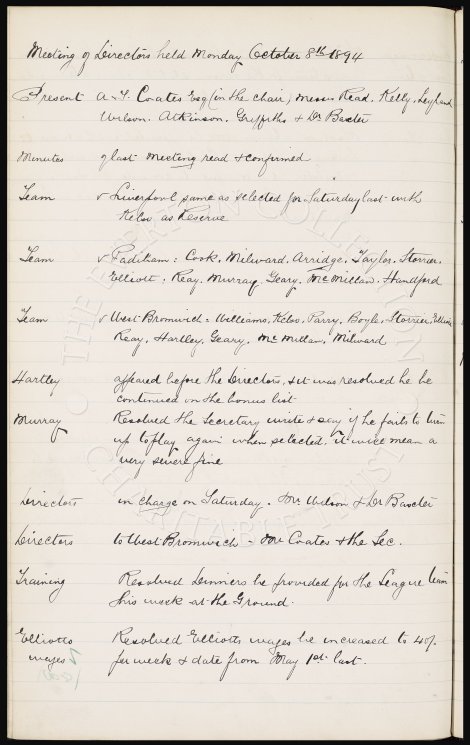 Meeting of Directors held Monday October 8th 1894
Present A. T. Coates Esq (in the chair) messrs Read. Kelly. Leyland
Wilson. Atkinson. Griffiths & Dr Baxter
Minutes of last meeting read & confirmed
Team v Liverpool same as selected for Saturday last with
Kelso as Reserve
Team v Padiham: Cook. Milward. Arridge. Taylor. Storrier.
Elliott. Reay. Murray. Geary. McMillan. Handford
Team v West Bromwich: Williams. Kelso. Parry. Boyle. Storrier. Elliott
Reay. Hartley. Geary. McMillan. Milward
Hartley appeared before the Directors, & it was resolved he be
continued on the bonus list
Murray Resolved the Secretary write & say if he fails to turn
up to play again when selected, it will mean a
very severe fine
Directors in charge on Saturday. Mr Wilson & Dr Baxter
Directors to West Bromwich - Mr Coates & the Sec.
Training Resolved Dinners be provided for the League team
this week at the Ground.
Elliotts Resolved Elliotts wages be increased to 40/-
wages per week & date from May 1st last.
THE EVERTON COLLECTION
CHARITABLE TRUST